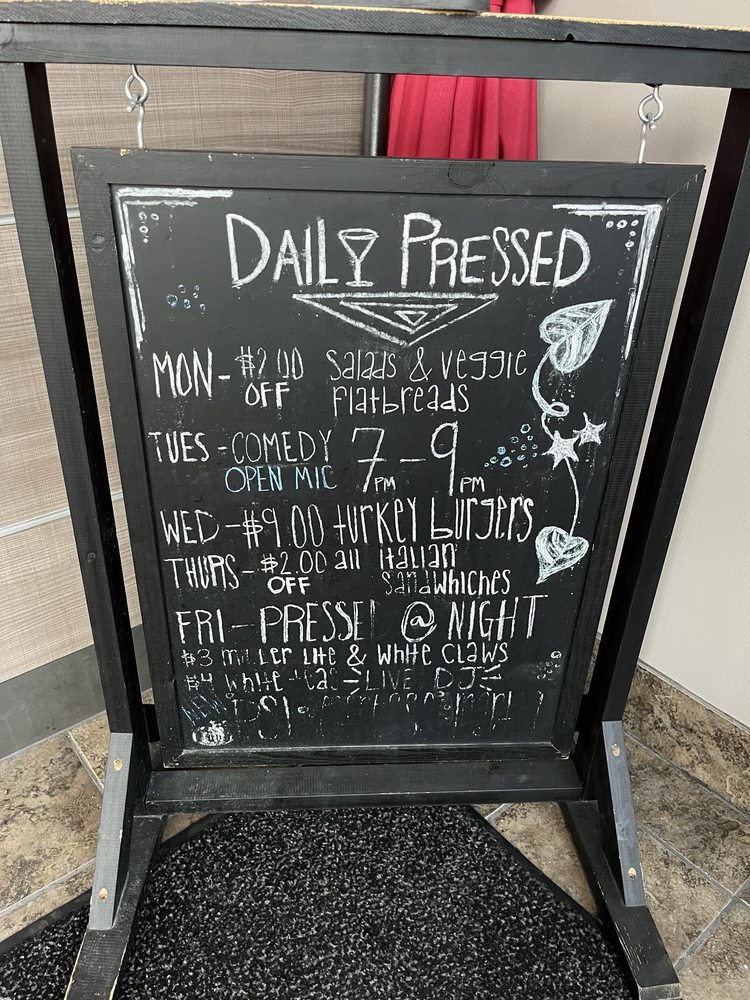 DAILY PRESSED
MON - $2.00 OFF salads & veggie flatbreads
TUES - COMEDY OPEN MIC 7PM - 9PM
WED - $9.00 turkey burgers
THURS - $2.00 OFF all italian sandwhiches
FRI - PRESSED @ NIGHT
$3 miller lite & white claws
$4 white LIVE DJ